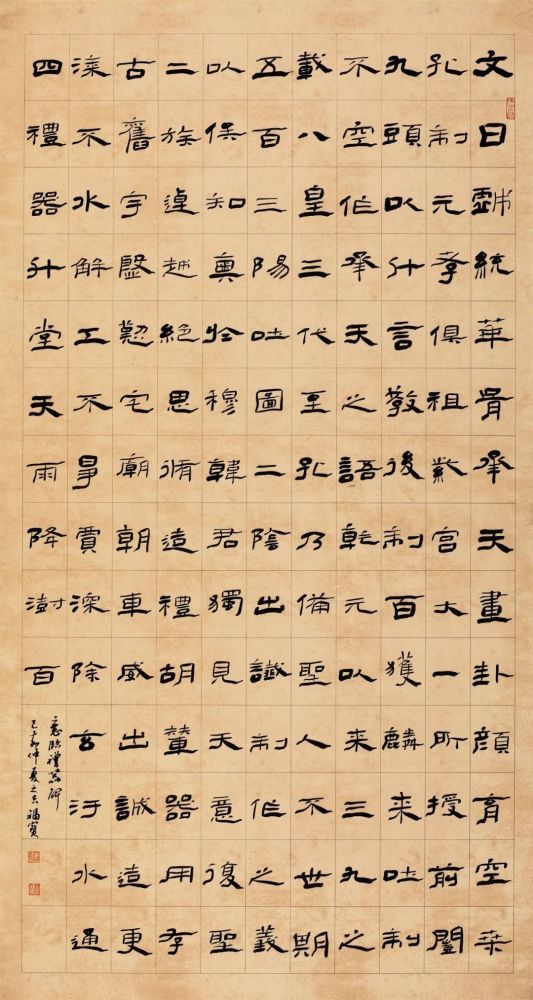 文曰戲統華胥承天畫卦顏育空桒
孔制元孝俱祖紫宮大一所授前闓
九頭以什言教後制百獲麟來吐制
不空作承天之語乾元以來三九之
載八皇三代至孔乃備聖人不世期
五百三陽吐圖二陰出讖制作之義
以俟知奧於穆韓君獨見天意復聖
二族逴越絕思脩造禮胡輦器用存
古舊宇慇懃宅廟朝車威出誠造更
漆不水解工不爭賈深除玄汙水通
四禮器升堂天雨降澍百
意臨禮器碑
仲夏之吉福寶